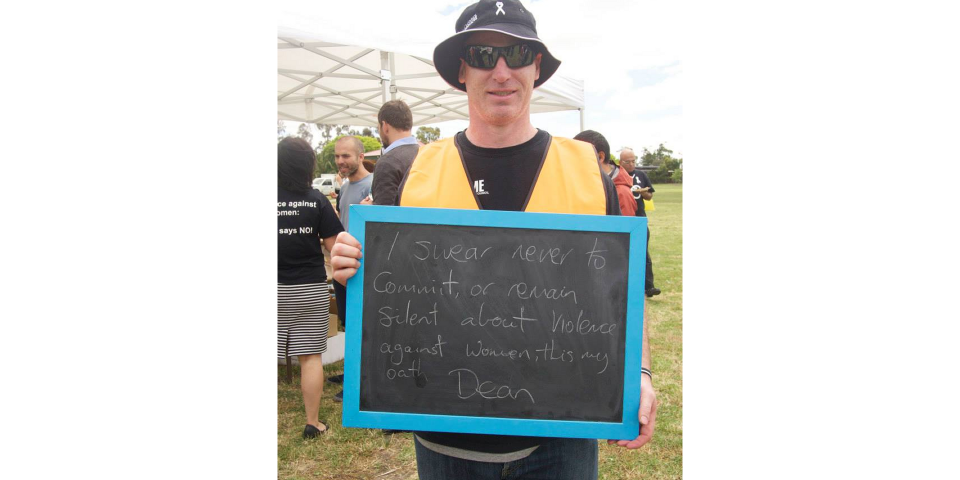 ce against
omen:
says NO!
ME
I swear never to
Commit, or remain
Silent about Violence
against Women, this my
oath
Dean